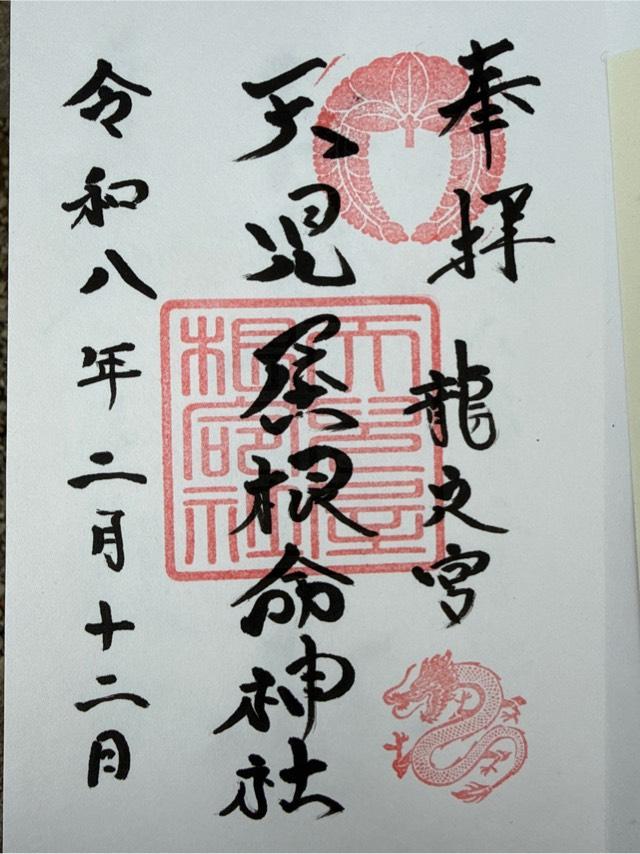 奉拝 龍之宮
天児屋根命神社
天児屋根命神社
令和八年二月十二日